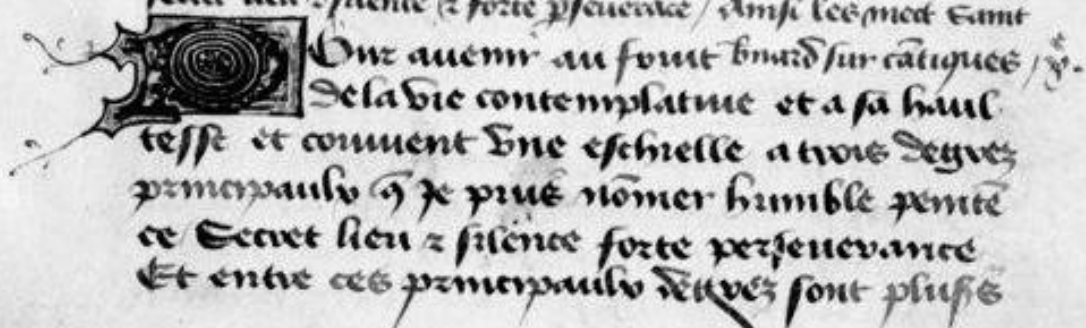 secret lieu ⁊ silence ⁊ forte p̲seuerāce / Ainsi les mect Saint
Our auenir au fruit b̄nard̄ sur cātiques / x̊.
de la vie contemplatiue et a sa haul
tesse et conuient vne eschielle a trois degrez
principaulx q̄ Je puis nōmer humble penitē
ce Secret lieu ⁊ silence forte perseuerance
Et entre ces principaulx degrez sont plus̉s